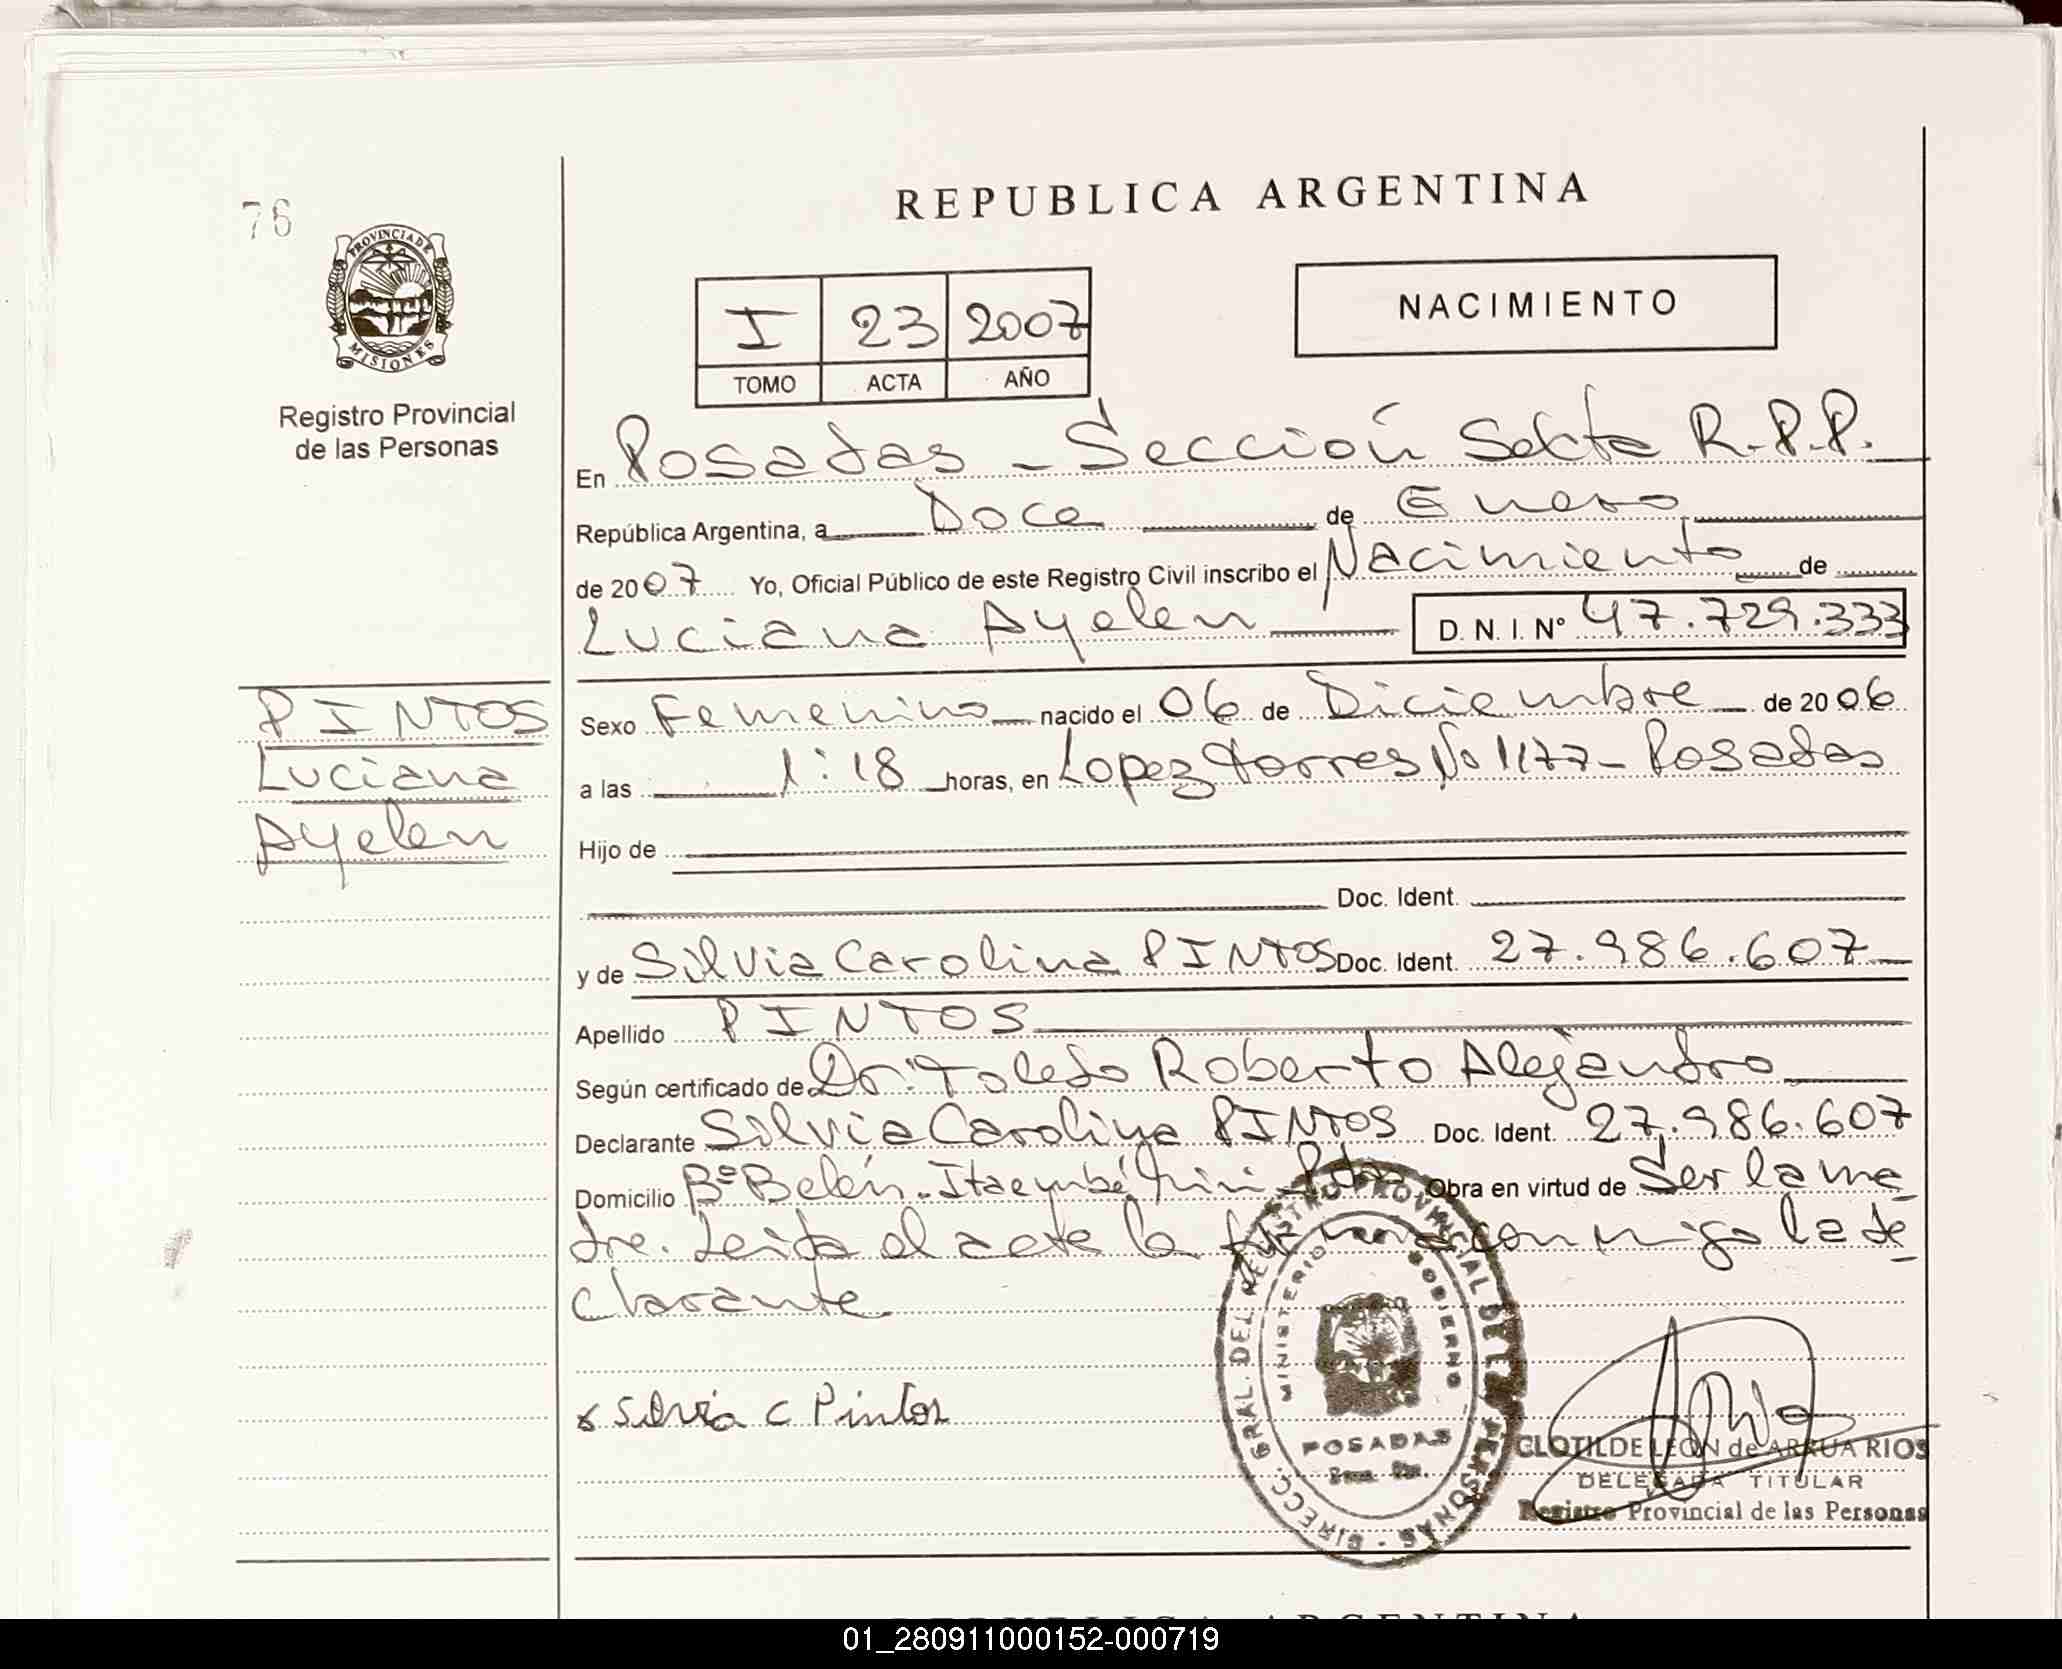 76
PROVINCIA DE
MISIONES
Registro Provincial
de las Personas
REPUBLICA ARGENTINA
I 23 2007
TOMO ACTA AÑO
NACIMIENTO
En Posadas - Sección Sexta R.P.P.
República Argentina, a Doce de Enero
de 2007 Yo, Oficial Público de este Registro Civil inscribo el Nacimiento de
Luciana Ayelen D. N. I. Nº 47.729.333
PINTOS
Luciana
Ayelen
Sexo Femenino nacido el 06 de Diciembre de 2006
a las 1:18 horas, en Lopez torres No 1177 - Posadas
Hijo de
Doc. Ident.
y de Silvia Carolina PINTOS Doc. Ident. 27.986.607
Apellido PINTOS
Según certificado de Dr. Toledo Roberto Alejandro
Declarante Silvia Carolina PINTOS Doc. Ident. 27.986.607
Domicilio Bº Belén - Itaembé Mini - Pdas Obra en virtud de Ser la ma
dre. Leída el acta la firma conmigo la de
clarante
x Silvia C Pintos
DIRECC. GRAL. DEL REGISTRO PROVINCIAL DE LAS PERSONAS
MINISTERIO GOBIERNO
POSADAS
CLOTILDE LEON de ARRUA RIOS
DELEGADA TITULAR
Registro Provincial de las Personas
REPUBLICA ARGENTINA
01_280911000152-000719